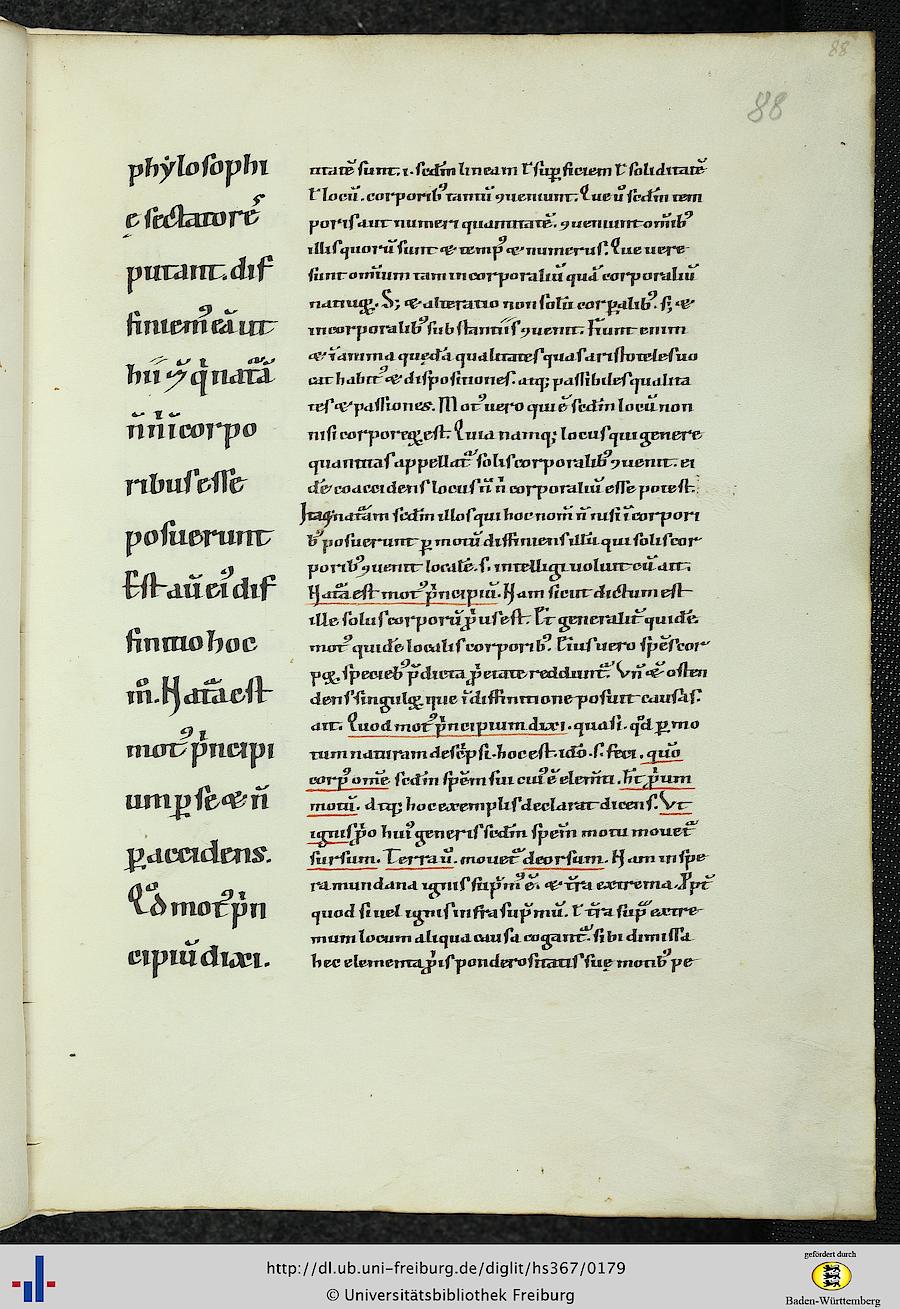 88
88
phẏlosophi
ę sectatores̆
putant. dif
finiem᷒ eā ut
hii
corpo
ribus esse
posuerunt
Est aū ei᷒ dif
finitio hoc
m̊. Natᷓa est
mot᷒ p̍ncipi
um ꝑ se & n̄
ꝑ accidens.
Qd̊ mot᷒ p̍n
cipiū dixi.
ntatē sunt. i. scdm lineam ł suꝑficiem ł soliditatē
ł locū. corporib᷒ tantū ꝯueniunt. Que ū scdm tem
poris aut numeri quantitatē. ꝯueniunt omīb᷒
illis quorū sunt & temp᷒ & numerus. Que uere
sunt omnium tam incorporaliū quā corporaliū
S; & alteratio non solū corꝑalib᷒. s; &
incorporalib᷒ substantiis ꝯuenit. Fiunt enim
& ī anima quędā qualitates quas aristoteles uo
cat habit᷒ & dispositiones. atq; passibiles qualita
tes & passiones. Mot᷒ uero qui ē scdm locū non
nisi corporeꝝ est. Quia namq; locus qui genere
quantitas appellatᷓ solis corporalib᷒ ꝯuenit. ei
dē coaccidens locus n̄ n̍ corporaliū esse potest.
Itaq; natᷓam scdm illos qui hoc nom̄ n̄ nisi ī corpori
b᷒ posuerunt ꝑ motū diffiniens illū qui solis cor
porib᷒ ꝯuenit localē. s. intelligi uoluit cū ait.
Natᷓa est mot᷒ p̍ncipiū. Nam sicut dictum est
ille solus corporū ꝓp̍us est. Et generalit̄ quidē
mot᷒ quidē localis corporib᷒. Eius uero spēs cor
poꝝ. specieb᷒ p̄dicta ꝓp̍etate reddunt᷑. Vn̄ & osten
dens singulaꝝ que ī diffinitione posuit causas.
ait. Quod mot᷒ p̍ncipium dixi. quasi. qd̊ ꝑ mo
tum naturam descͥpsi. hoc est. idō. s. feci. quō
corp᷒ om̄e scdm spēm sui cui᷒ ē elem̄ti. ħt ꝓp̍um
motū. Atq; hoc exemplis declarat dicens. Vt
ignis ꝓpͦ hui᷒ generis scdm spēm motu mouetᷓ
sursum. Terra ū. mouetᷓ deorsum. Nam in spe
ra mundana ignis sup̄m᷒ ē. & t̄ra extrema.
quod si uel ignis infra sup̄mū. ł t̄ra supᷓ extre
mum locum aliqua causa cogantᷓ. sibi dimissa
hec elementa ꝓp̍is ponderositatis suę motib᷒ pe
http://dl.ub.uni-freiburg.de/diglit/hs367/0179
© Universitätsbibliothek Freiburg
gefördert durch
Baden-Württemberg